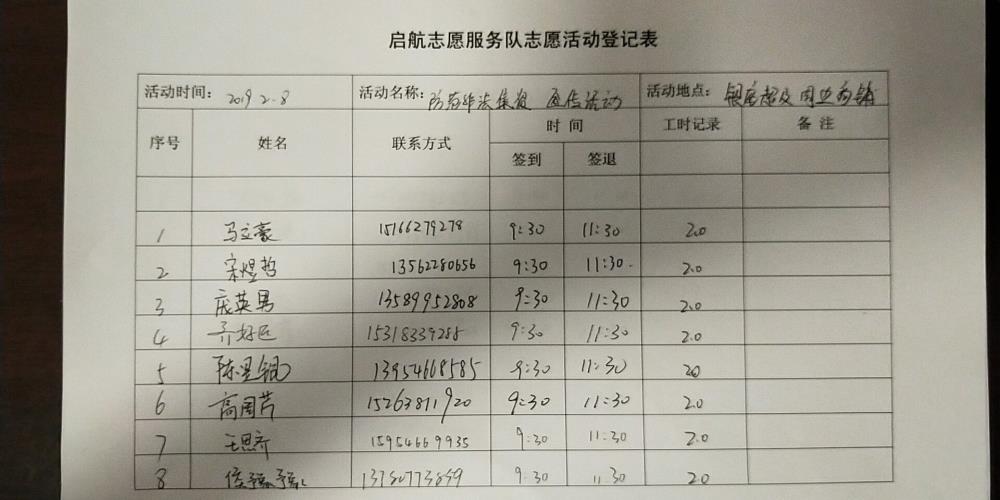 启航志愿服务队志愿活动登记表
活动时间: 2019 2.8 活动名称: 防范非法集资 宣传活动 活动地点: 银座超及周边商铺
序号 姓名 联系方式 时间 工时记录 备注
签到 签退
1 马立豪 15166279278 9:30 11:30 2.0
2 宋煜哲 13562280656 9:30 11:30 2.0
3 庞英男 13589952808 9:30 11:30 2.0
4 15318339285 9:30 11:30 2.0
5 13954668585 9:30 11:30 20
6 高周芦 15263811920 9:30 11:30 2.0
7 王思齐 15954669935 9:30 11:30 2.0
8 9:30 11:30 2.0